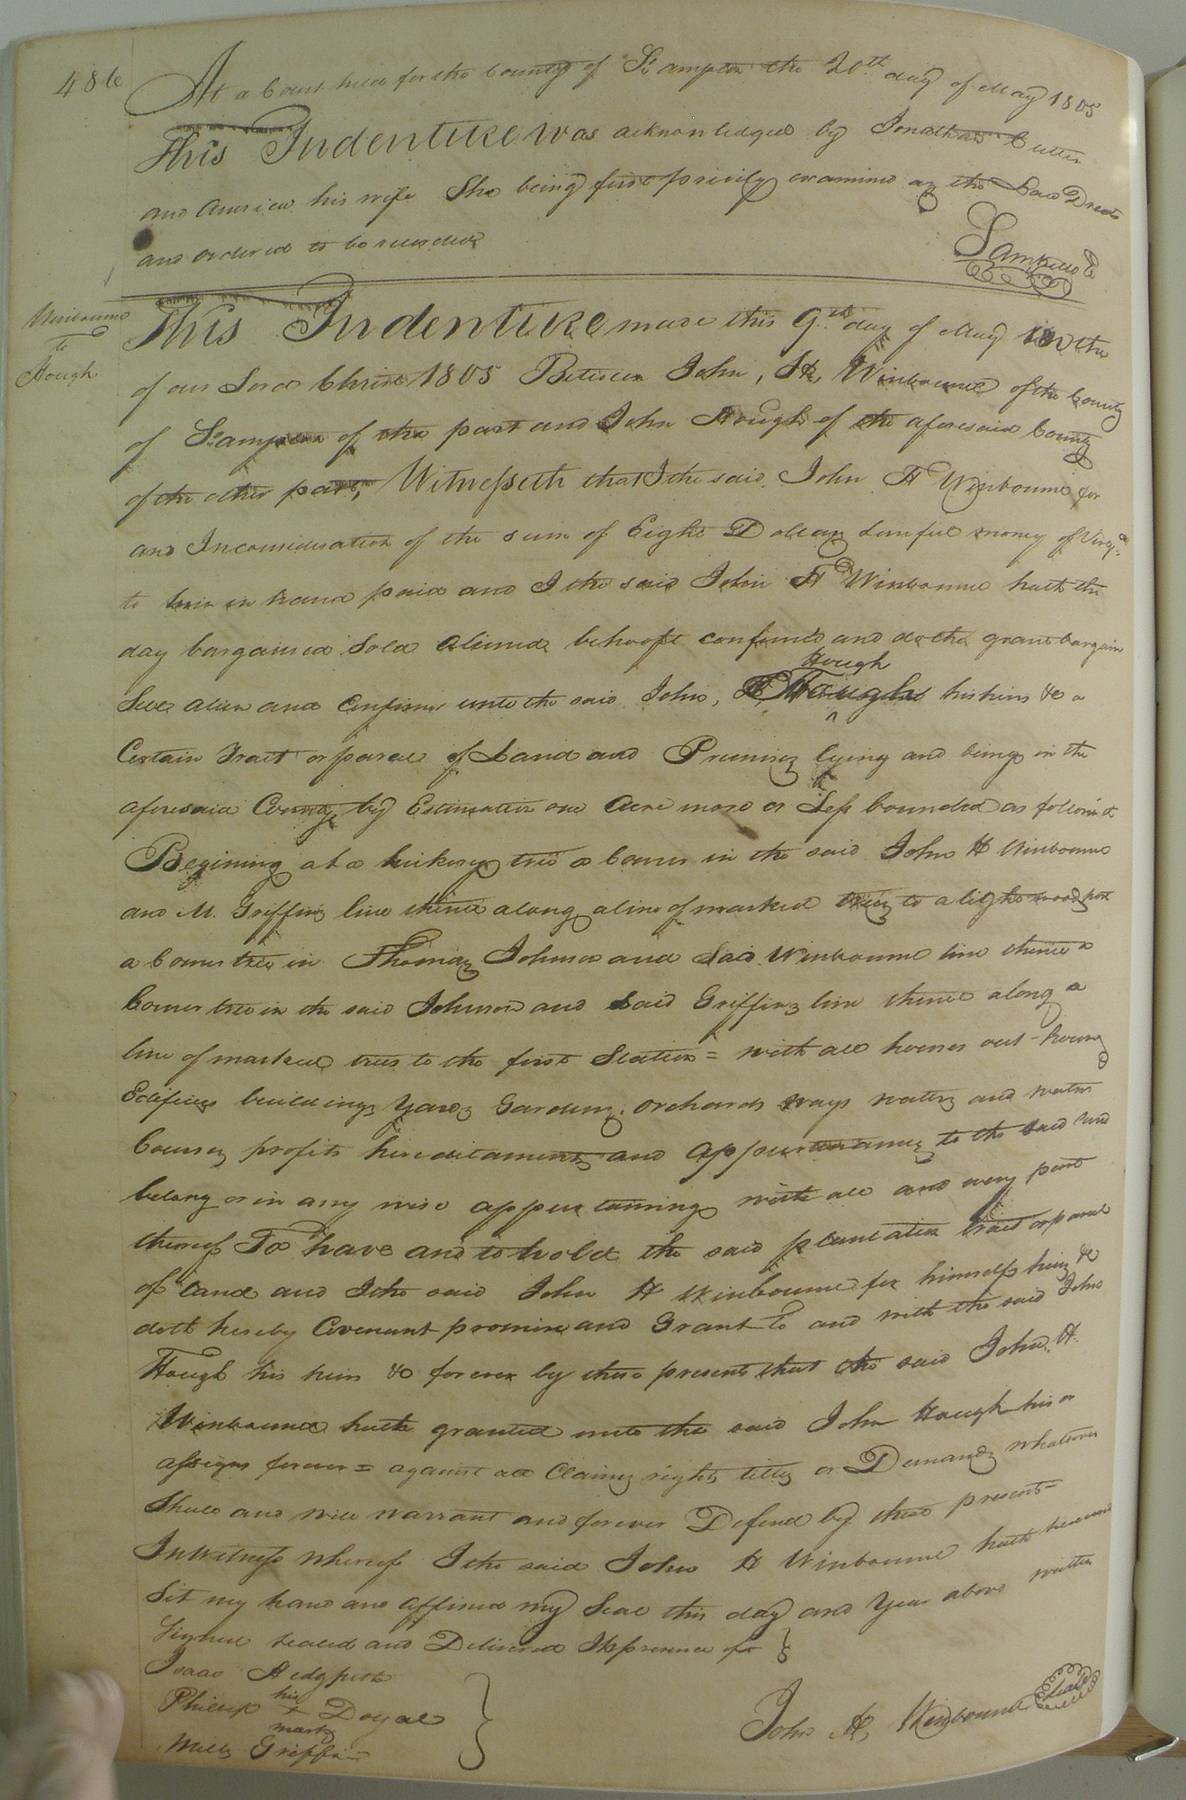 486
At a Court held for the County of So ampton the 20th day of May 1805
This Indenture was acknowledged by Jonathan Cutter
and his wife She being first privily examined as the Law Directs
and ordered to be recorded
Saml Kello C
Winbourne
to
Hough
This Indenture made this 9th day of May in the
of our Lord Christ 1805 Between John, H, Winbourne of the County
of So ampton of the part and John Hough of the aforesaid County
of the other part, Witnesseth that I the said John H Winbourne for
and Inconsideration of the sum of Eight Dollars Lawful money of Virga
to him in hand paid and I the said John H Winbourne hath the
day bargained Sold aliened behooft confirmed and doth grant bargain
Sell alien and Confirm unto the said John, Hough his heirs &c a
Certain Tract or parcel of Land and Premises lying and being in the
aforesaid County by Estimation one Acre more or Less bounded as follows
Begining at a hickory tree a corner in the said John H Winbourne
and M. Griffins line thence along a line of marked trees to a lightwood post
a Corner tree in Thomas Johnson and Said Winbourne line thence a
Corner tree in the said Johnson and Said Griffins line thence along a
line of marked trees to the first Station = with all houses out-houses
Edifices buildings Yards Gardens orchards ways waters and water
Courses profits hereditaments and appurtenances to the said Land
belong or in any wise appertaining with all and every part
thereof To have and to hold the said plantation tract or parcel
of Land and I the said John H Winbourne for himself heirs &c
doth hereby Covenant promise and Grant to and with the said John
Hough his heirs &c forever by these presents that the said John H.
Winbourne hath granted unto the said John Hough his or
assigns forever = against all Claims rights titles or Demands whatever
Shall and will warrant and forever Defend by these presents =
In Witness Whereof I the said John H Winbourne hath hereunto
Set my hand and affixed my Seal this day and Year above written
Signed Sealed and Delivered In presence of
Isaac Hedgpeth
his
Phillip + Doyal
mark
Mills Griffin
John H, Winbourne Seal